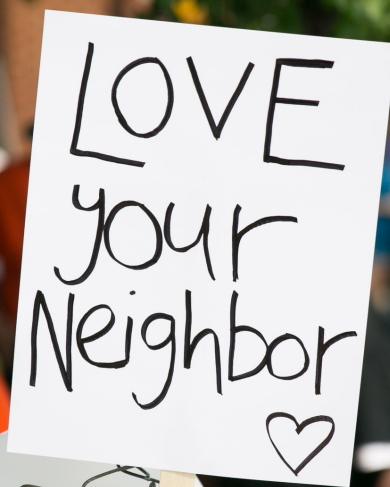 LOVE
your
Neighbor